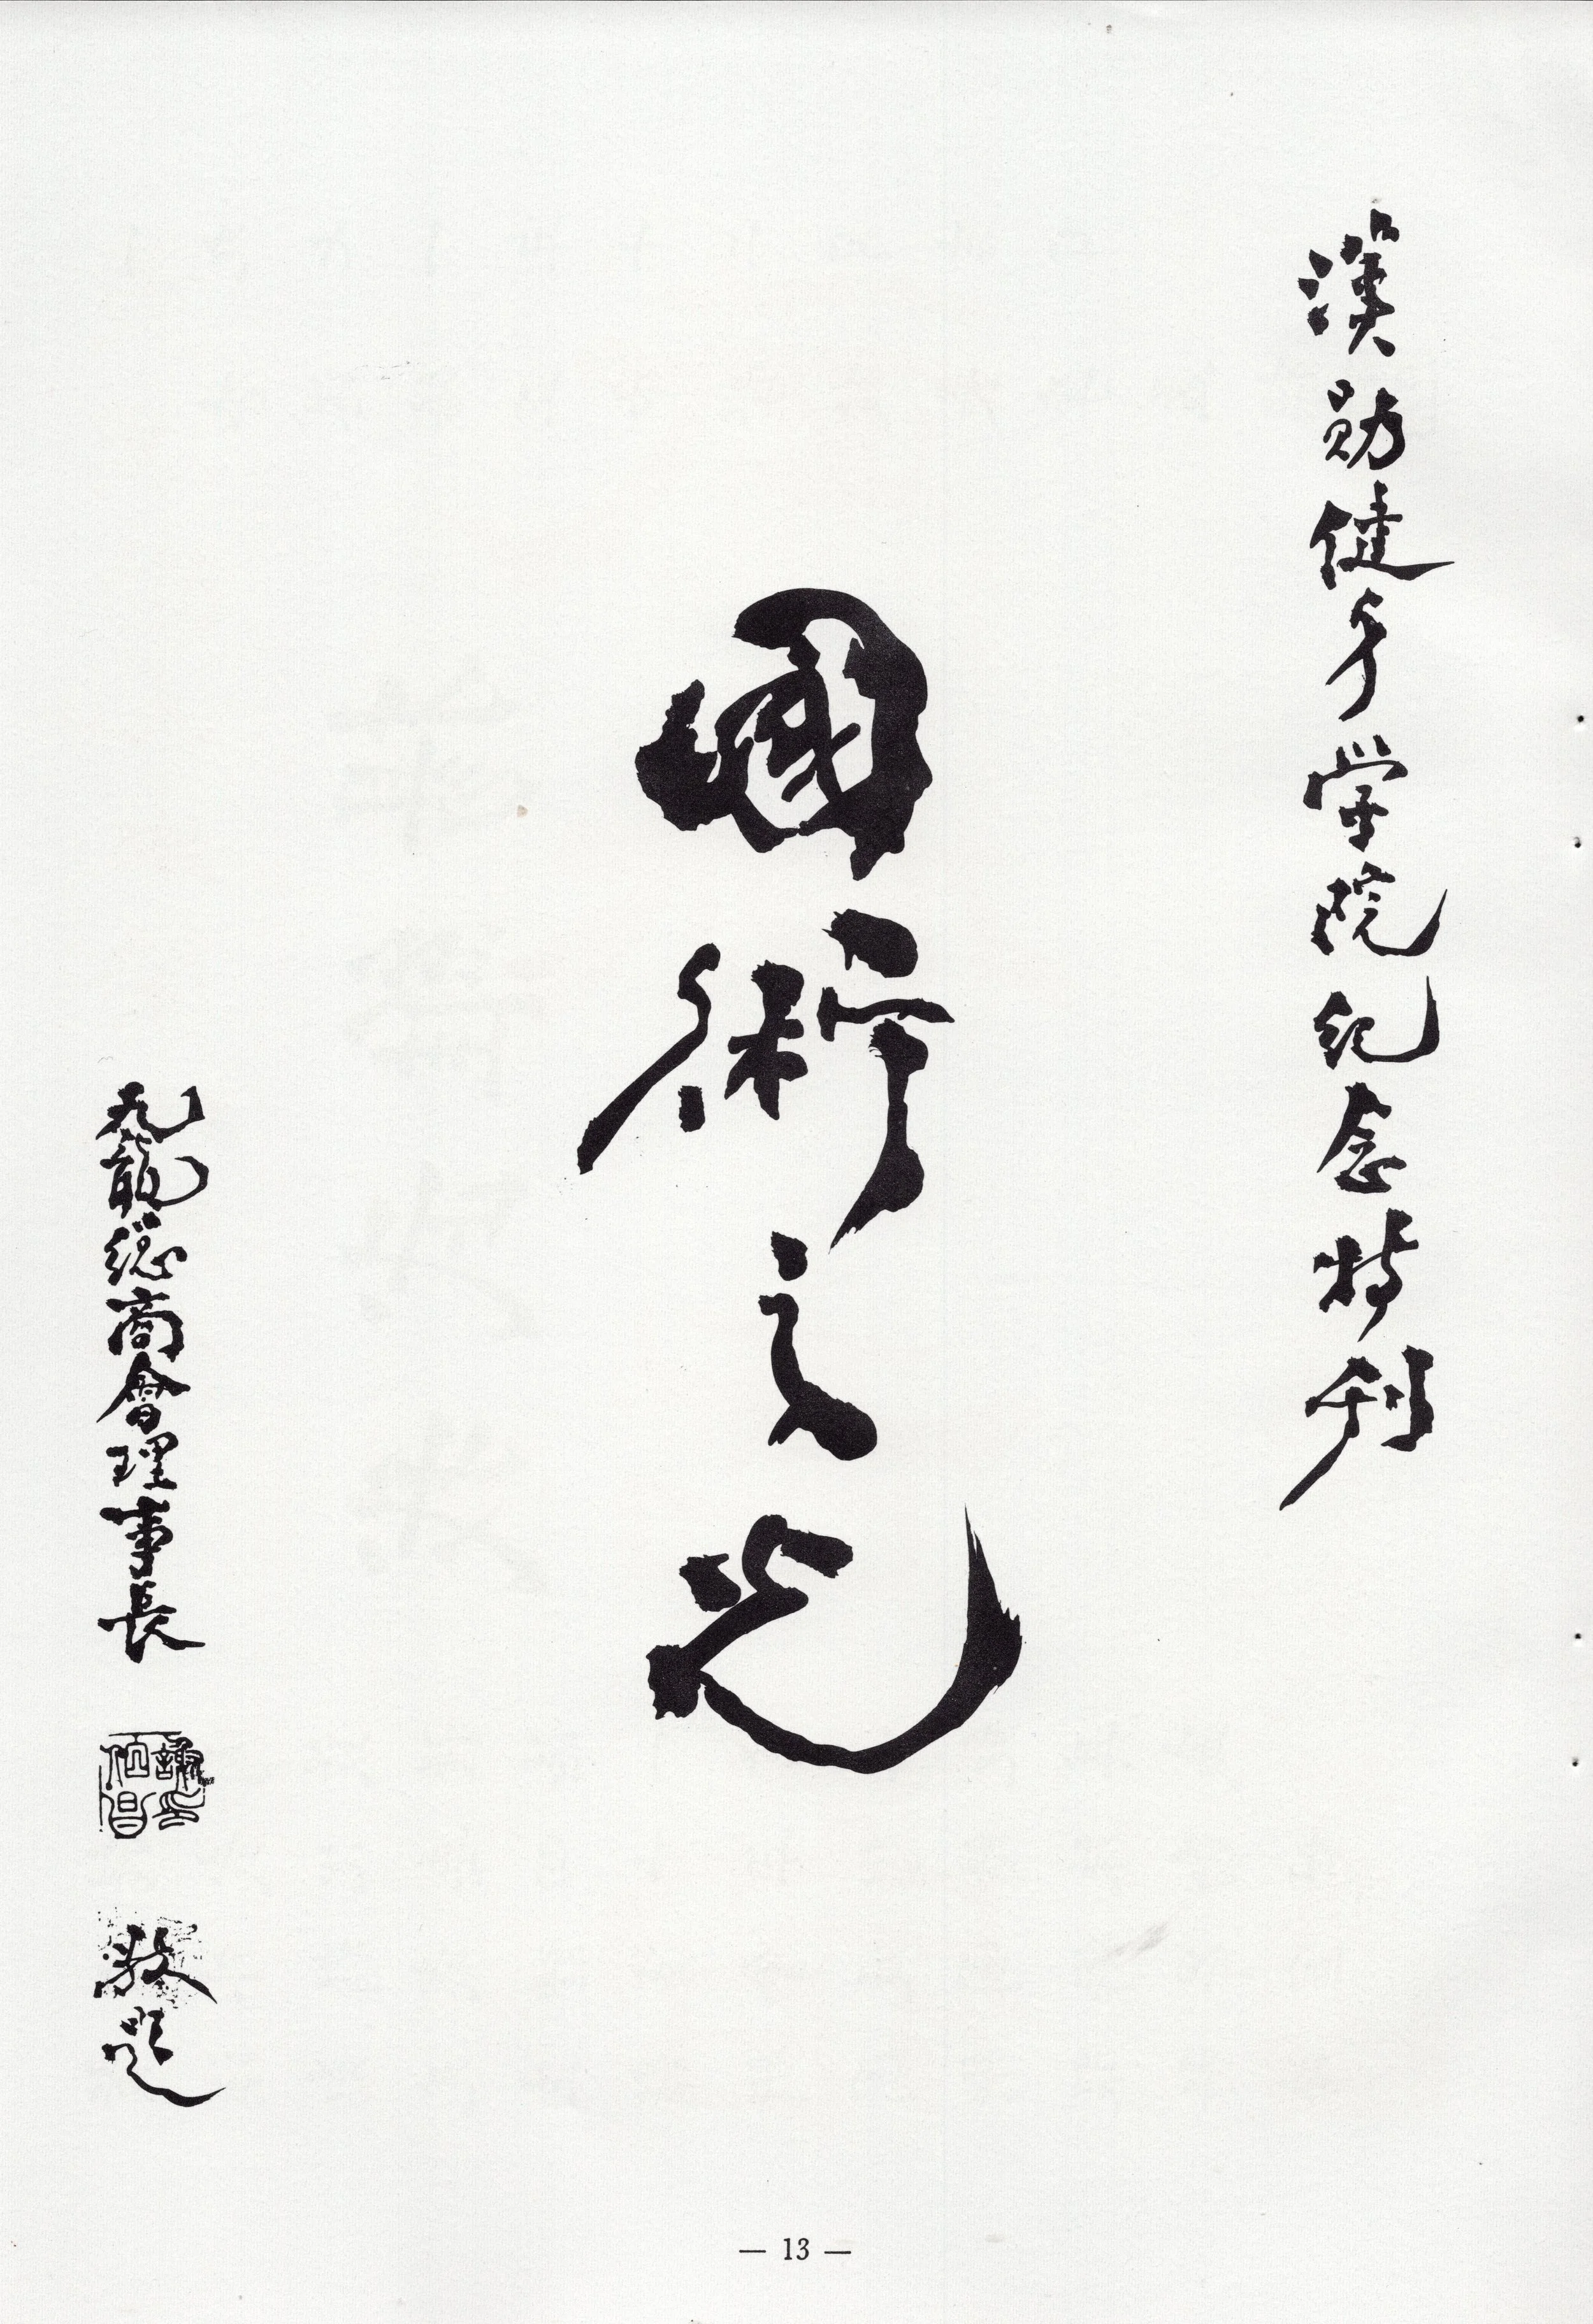 漢勛健身学院紀念特刊
國術之光
九龍總商會理事長
謝印伯昌
敬題
— 13 —